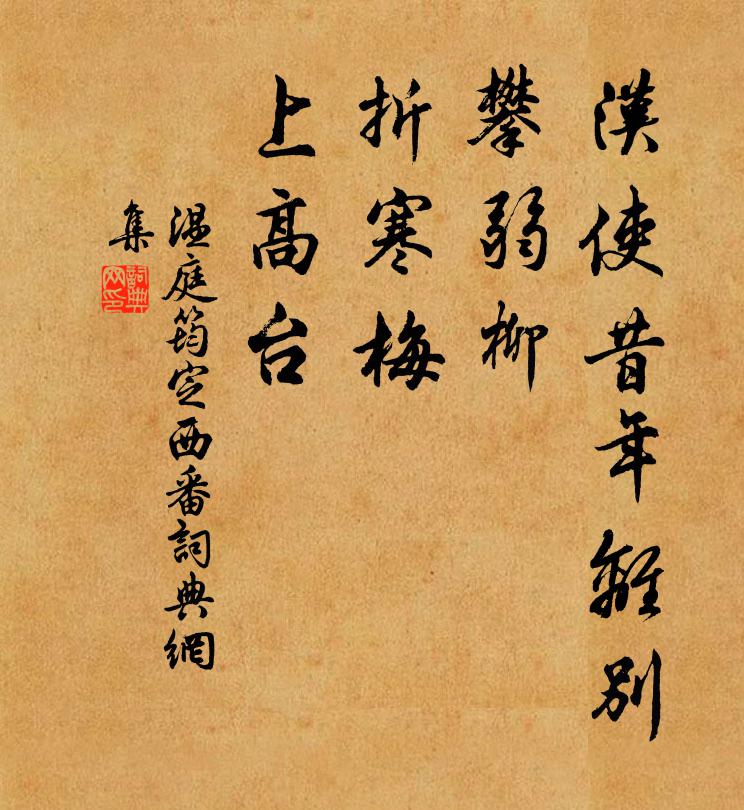 漢使昔年離別
攀弱柳
折寒梅
上高台
温庭筠定西番詞典網
集
詞典
网印